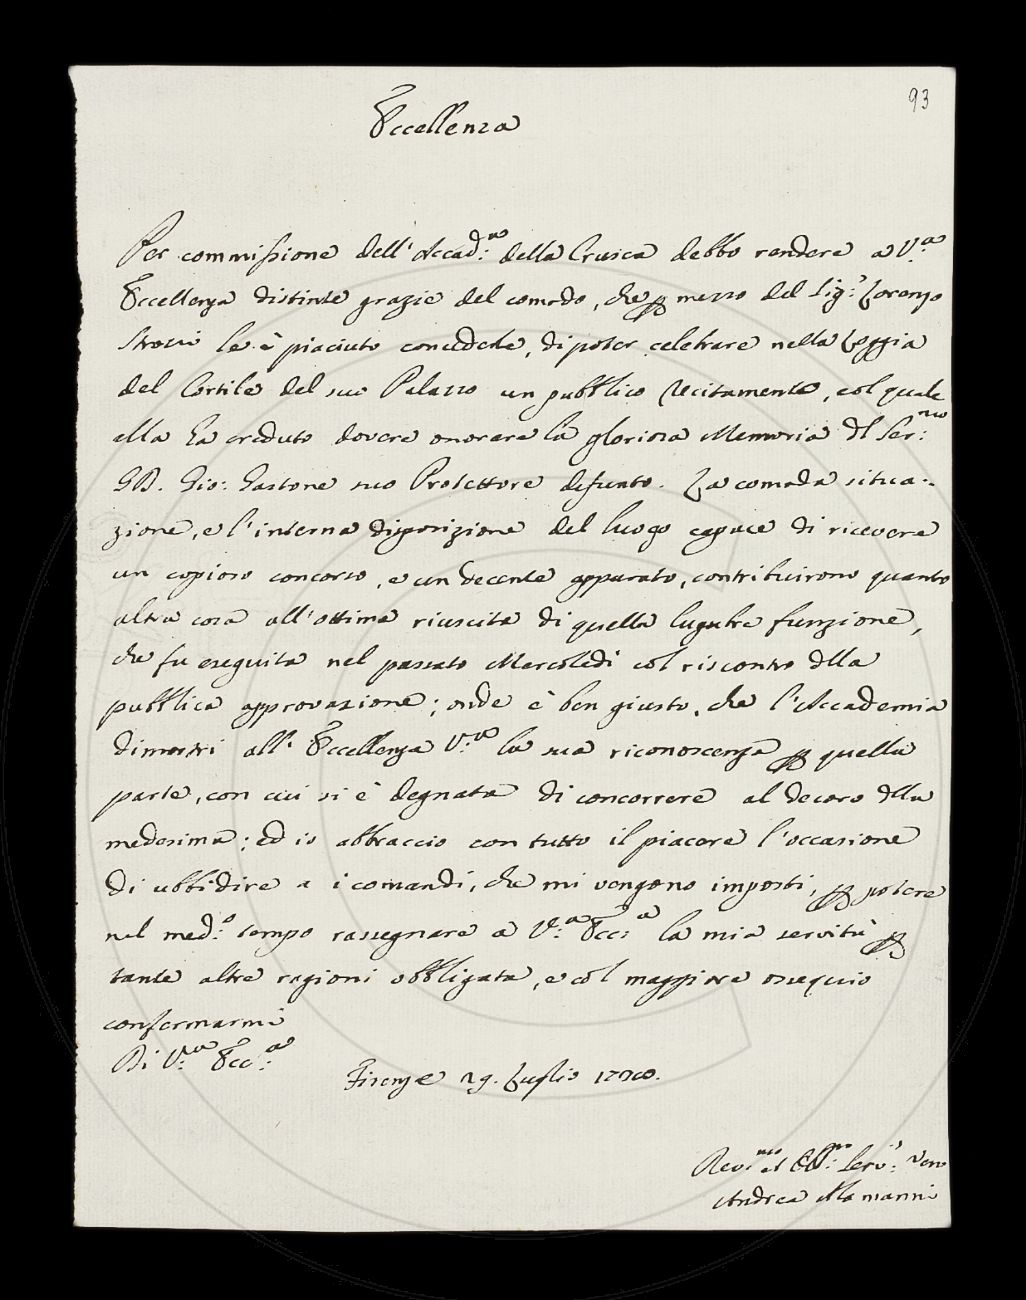 93
Eccellenza
Per commissione dell'Accad:ª della Crusca debbo rendere a V:ª
Eccellenza distinte grazie del comodo, che per mezzo del Sig:ʳ Lorenzo
Strozzi le è piaciuto concederle, di poter celebrare nella Loggia
del Cortile del suo Palazzo un pubblico Recitamento, col quale
ella ha creduto dovere onorare la gloriosa Memoria del Ser:ᵐᵒ
GD. Gio: Gastone suo Protettore defunto. La comoda situa-
zione, e l'interna disposizione del luogo capace di ricevere
un copioso concorso, e un decente apparato, contribuirono quanto
altra cosa all'ottima riuscita di quella lugubre funzione,
che fu eseguita nel passato Mercoledì col riscontro della
pubblica approvazione; onde è ben giusto, che l'Accademia
dimostri all'Eccellenza V:ª la sua riconoscenza per quella
parte, con cui si è degnata di concorrere al decoro della
medesima; ed io abbraccio con tutto il piacere l'occasione
di ubbidire a i comandi, che mi vengono imposti, per potere
nel med:º tempo rassegnare a V:ª Ecc:ª la mia servitù per
tante altre ragioni obbligata, e col maggiore ossequio
confermarmi
Di V:ª Ecc:ª
Firenze 29. Luglio
Dev:ᵐᵒ ed Obb:ᵐᵒ Serv:ʳ Vero
Andrea Alamanni